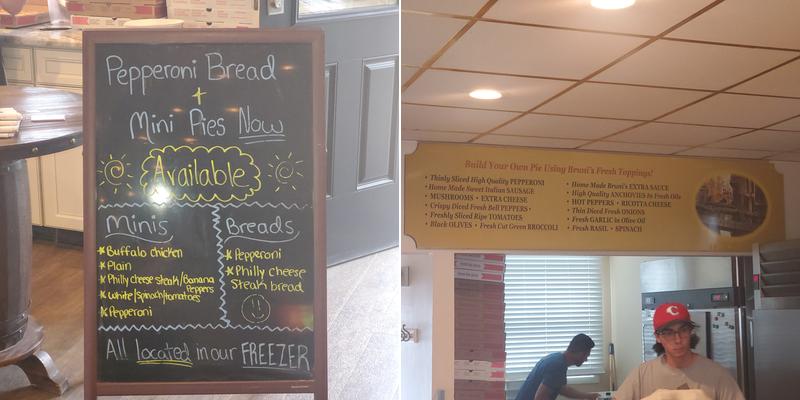 Pepperoni Bread
+
Mini Pies Now
Available
Minis
* Buffalo chicken
* Plain
* Philly cheese steak/Banana
Peppers
* White/spinach/tomatoes
* Pepperoni
Breads
* Pepperoni
* Philly cheese
Steak bread
All located in our FREEZER
Build Your Own Pie Using Bruni's Fresh Toppings!
• Thinly Sliced High Quality PEPPERONI
• Home Made Sweet Italian SAUSAGE
• MUSHROOMS • EXTRA CHEESE
• Crispy Diced Fresh Bell PEPPERS •
• Freshly Sliced Ripe TOMATOES
• Black OLIVES • Fresh Cut Green BROCCOLI
• Home Made Bruni's EXTRA SAUCE
• High Quality ANCHOVIES In Fresh Oils
• HOT PEPPERS • RICOTTA CHEESE
• Thin Diced Fresh ONIONS
• Fresh GARLIC in Olive Oil
• Fresh BASIL • SPINACH
C